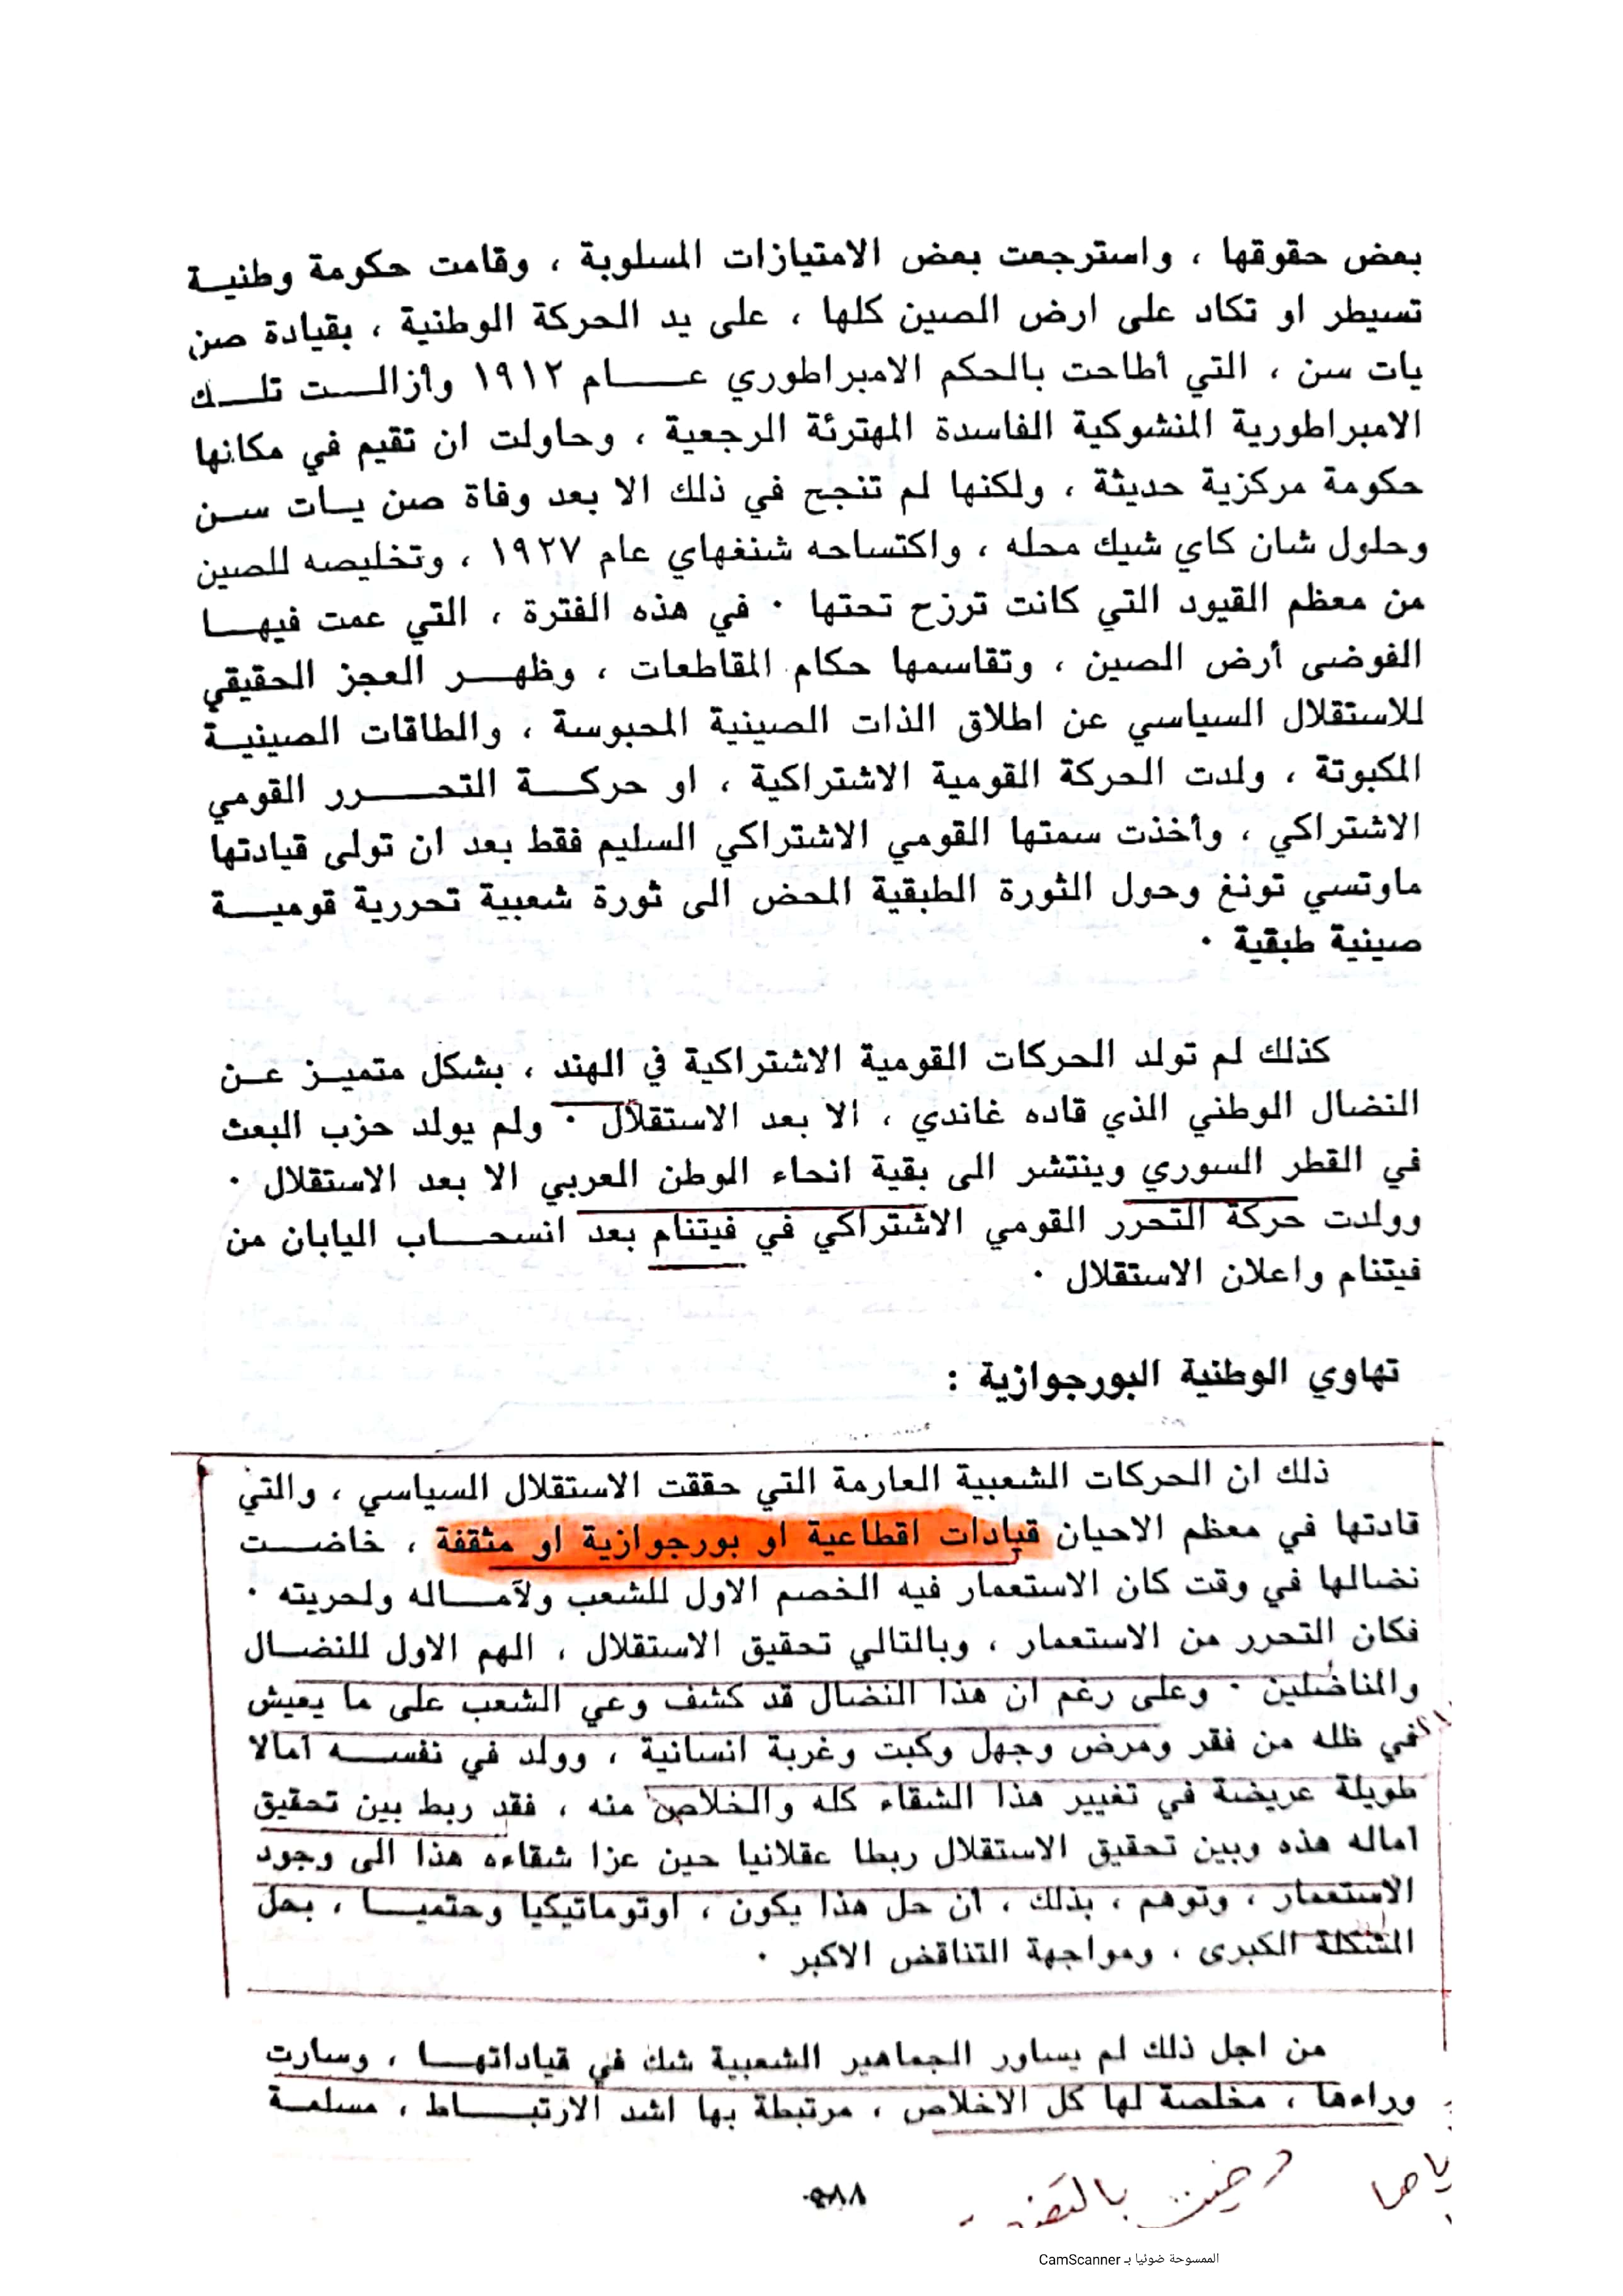 بعض حقوقها ، واسترجعت بعض الامتيازات المسلوبة ، وقامت حكومة وطنيـة
تسيطر او تكاد على ارض الصين كلها ، على يد الحركة الوطنية ، بقيادة صن
يات سن ، التي أطاحت بالحكم الامبراطوري عـــام ١٩١٢ وأزالــت تلــك
الامبراطورية المنشوكية الفاسدة المهترئة الرجعية ، وحاولت ان تقيم في مكانها
حكومة مركزية حديثة ، ولكنها لم تنجح في ذلك الا بعد وفاة صن يــات ســن
وحلول شان كاي شيك محله ، واكتساحه شنغهاي عام ١٩٢٧ ، وتخليصه للصين
من معظم القيود التي كانت ترزح تحتها ٠ في هذه الفترة ، التي عمت فيهــا
الفوضى أرض الصين ، وتقاسمها حكام المقاطعات ، وظهــر العجز الحقيقي
للاستقلال السياسي عن اطلاق الذات الصينية المحبوسة ، والطاقات الصينيـة
المكبوتة ، ولدت الحركة القومية الاشتراكية ، او حركــة التحـــرر القومي
الاشتراكي ، وأخذت سمتها القومي الاشتراكي السليم فقط بعد ان تولى قيادتها
ماوتسي تونغ وحول الثورة الطبقية المحض الى ثورة شعبية تحررية قوميــة
صينية طبقية ٠
كذلك لم تولد الحركات القومية الاشتراكية في الهند ، بشكل متميــز عــن
النضال الوطني الذي قاده غاندي ، الا بعد الاستقلال ٠ ولم يولد حزب البعث
في القطر السوري وينتشر الى بقية انحاء الوطن العربي الا بعد الاستقلال ٠
وولدت حركة التحرر القومي الاشتراكي في فيتنام بعد انسحــاب اليابان من
فيتنام واعلان الاستقلال ٠
تهاوي الوطنية البورجوازية :
ذلك ان الحركات الشعبية العارمة التي حققت الاستقلال السياسي ، والتي
قادتها في معظم الاحيان قيادات اقطاعية او بورجوازية او مثقفة ، خاضــت
نضالها في وقت كان الاستعمار فيه الخصم الاول للشعب ولآمــاله ولحريته ٠
فكان التحرر من الاستعمار ، وبالتالي تحقيق الاستقلال ، الهم الاول للنضــال
والمناضلين ٠ وعلى رغم ان هذا النضال قد كشف وعي الشعب على ما يعيش
في ظله من فقر ومرض وجهل وكبت وغربة انسانية ، وولد في نفســه آمالا
طويلة عريضة في تغيير هذا الشقاء كله والخلاص منه ، فقد ربط بين تحقيق
اماله هذه وبين تحقيق الاستقلال ربطا عقلانيا حين عزا شقاءه هذا الى وجود
الاستعمار ، وتوهم ، بذلك ، ان حل هذا يكون ، اوتوماتيكيا وحتميــا ، بحل
المشكلة الكبرى ، ومواجهة التناقض الاكبر ٠
من اجل ذلك لم يساور الجماهير الشعبية شك في قياداتهــا ، وسارت
وراءها ، مخلصة لها كل الاخلاص ، مرتبطة بها اشد الارتبــاط ، مسلمــة
الممسوحة ضوئيا بـ CamScanner